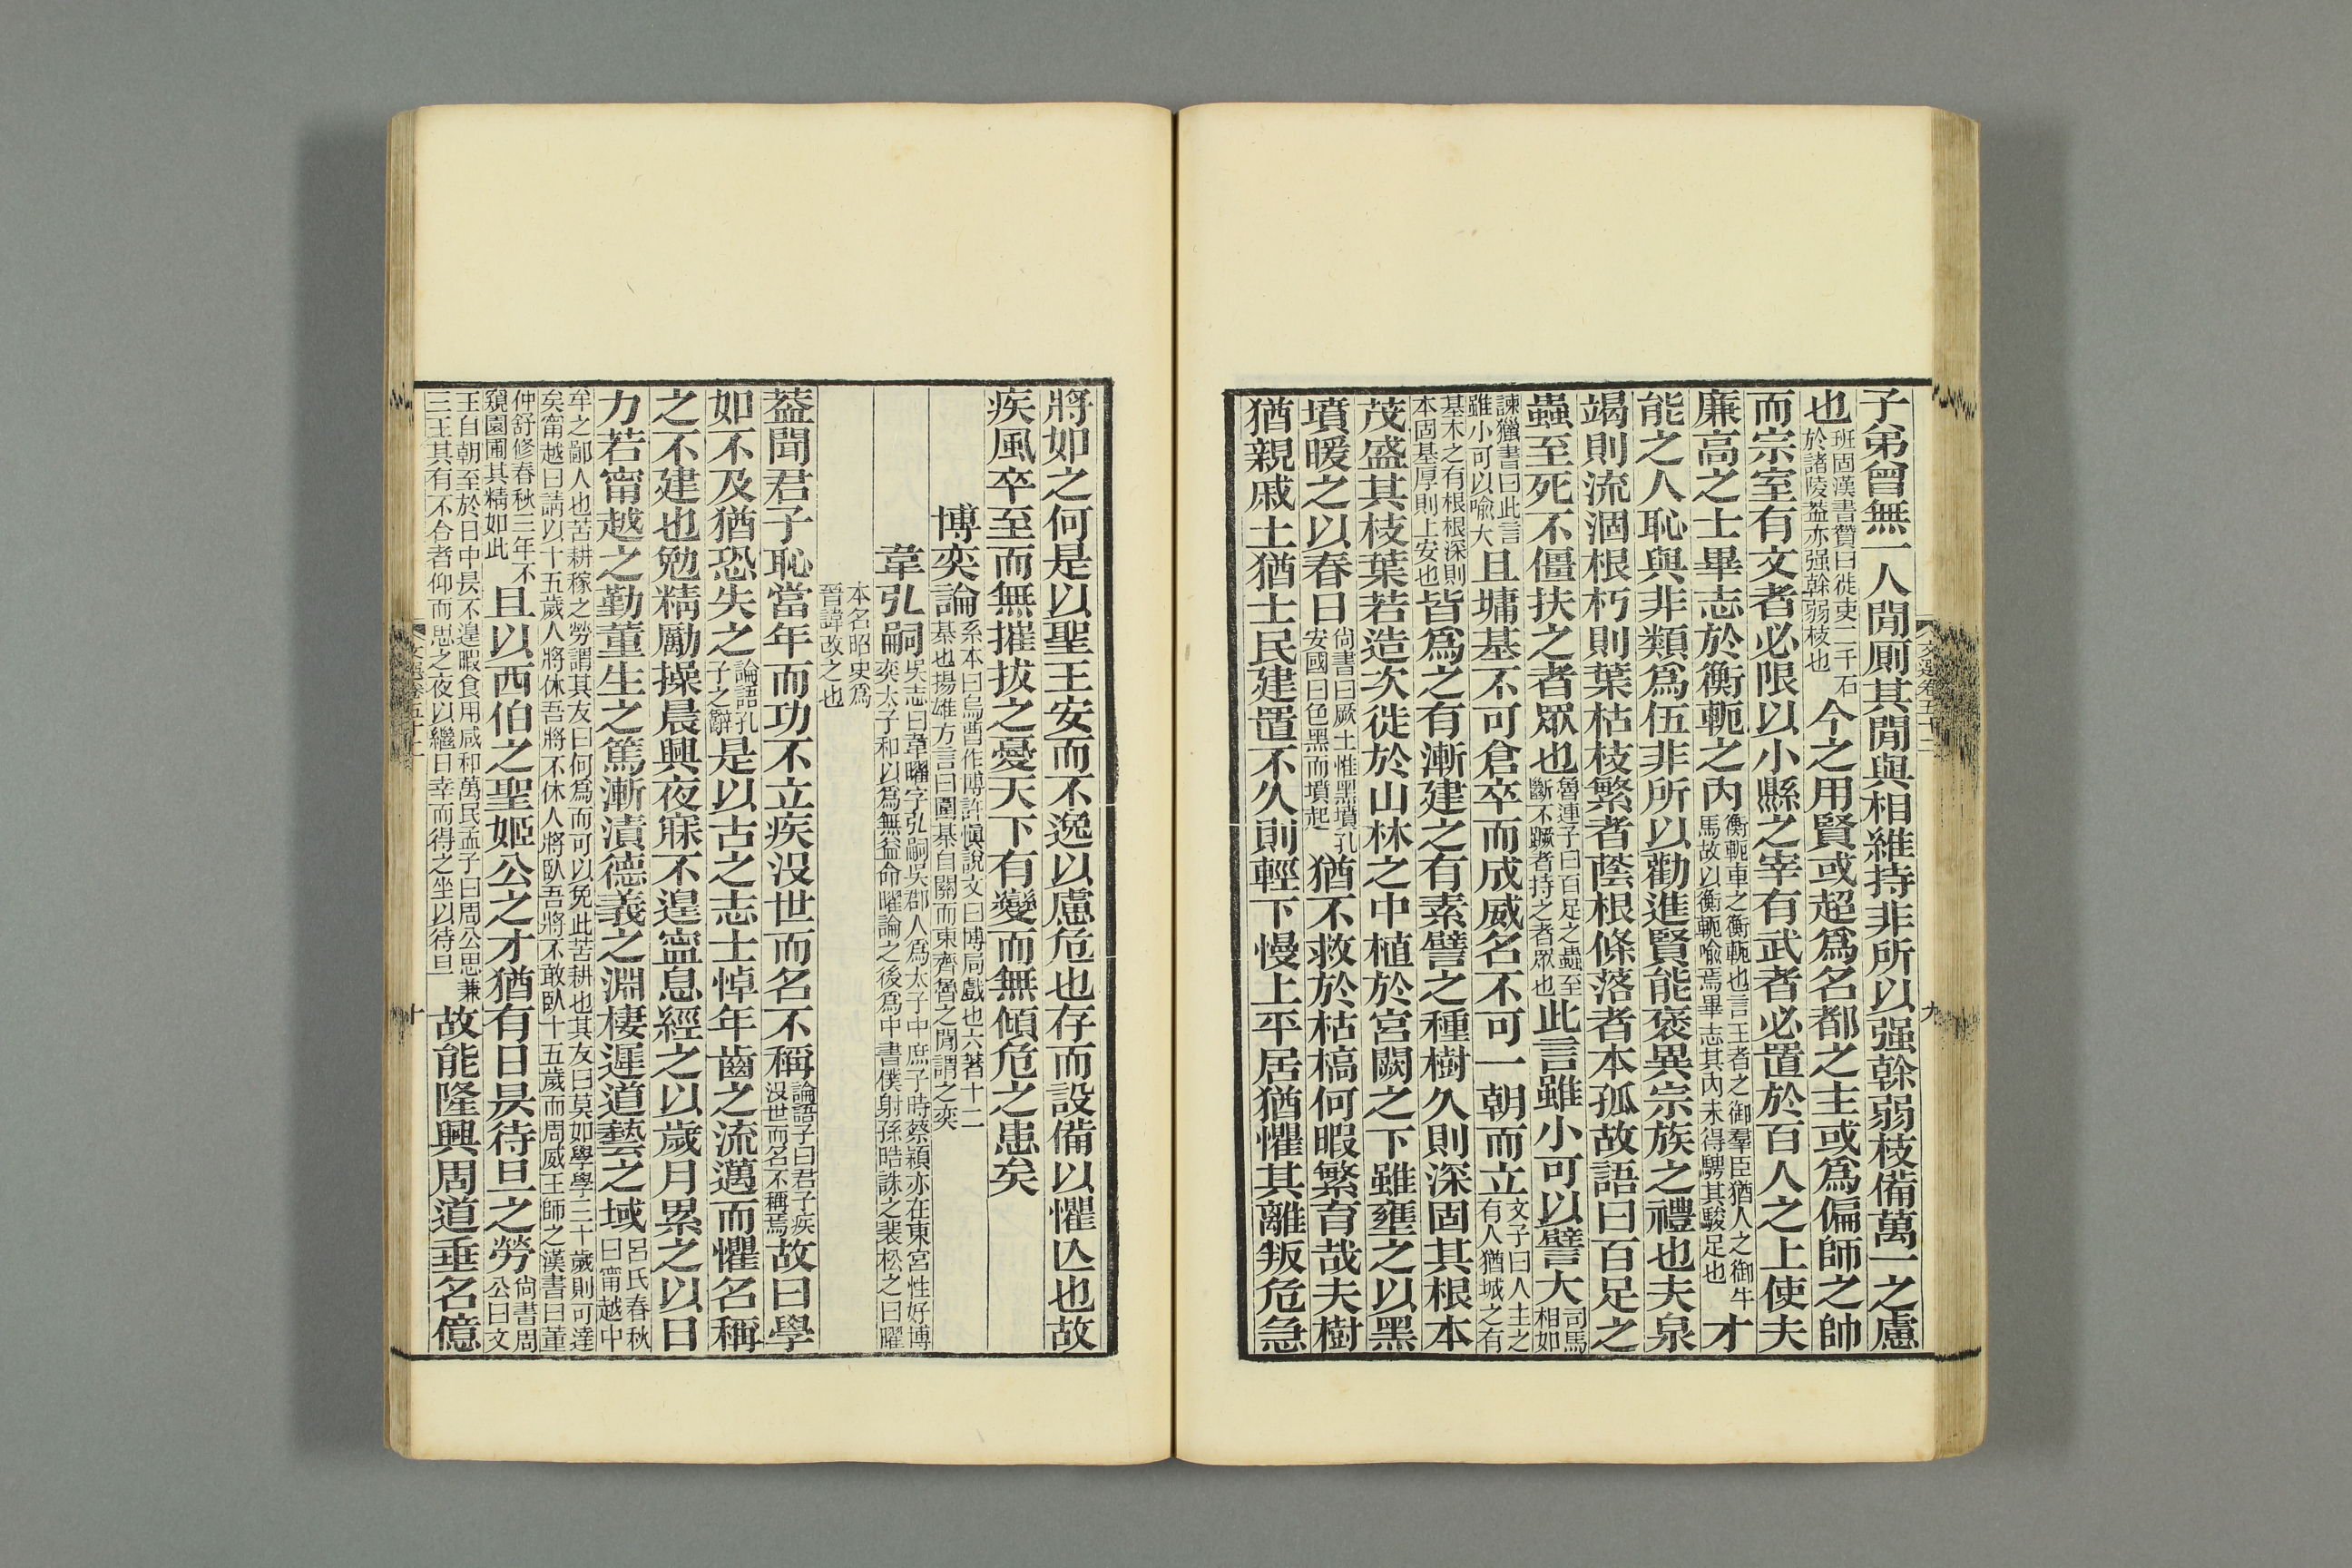 子弟曾無一人閒厠其閒與相維持非所以强幹弱枝備萬一之慮
也班固漢書贊曰徙吏二千石於諸陵蓋亦强幹弱枝也今之用賢或超爲名都之主或爲偏師之帥
而宗室有文者必限以小縣之宰有武者必置於百人之上使夫
廉高之士畢志於衡軛之内衡軛車之衡軛也言王者之御羣臣猶人之御牛馬故以衡軛喻焉畢志其内未得騁其駿足也才
能之人恥與非類爲伍非所以勸進賢能褒異宗族之禮也夫泉
竭則流涸根朽則葉枯枝繁者蔭根條落者本孤故語曰百足之
蟲至死不僵扶之者眾也魯連子曰百足之蟲至斷不蹶者持之者眾也此言雖小可以譬大司馬相如
諫獵書曰此言雖小可以喻大且墉基不可倉卒而成威名不可一朝而立文子曰人主之有人猶城之有
基木之有根根深則本固基厚則上安也皆爲之有漸建之有素譬之種樹久則深固其根本
茂盛其枝葉若造次徙於山林之中植於宮闕之下雖壅之以黑
墳暖之以春日尚書曰厥土惟黑墳孔安國曰色黑而墳起猶不救於枯槁何暇繁育哉夫樹
猶親戚土猶士民建置不久則輕下慢上平居猶懼其離叛危急
文選卷五十二
九
將如之何是以聖王安而不逸以慮危也存而設備以懼亾也故
疾風卒至而無摧拔之憂天下有變而無傾危之患矣
博奕論系本曰烏曹作博許愼說文曰博局戲也六著十二棊也揚雄方言曰圍棊自關而東齊魯之閒謂之奕
韋弘嗣吳志曰韋曜字弘嗣吳郡人爲太子中庶子時蔡穎亦在東宮性好博奕太子和以爲無益命曜論之後爲中書僕射孫晧誅之裴松之曰曜
本名昭史爲晉諱改之也
蓋聞君子恥當年而功不立疾没世而名不稱論語子曰君子疾没世而名不稱焉故曰學
如不及猶恐失之論語孔子之辭是以古之志士悼年齒之流邁而懼名稱
之不建也勉精勵操晨興夜寐不遑寧息經之以歲月累之以日
力若甯越之勤董生之篤漸漬德義之淵棲遲道藝之域呂氏春秋曰甯越中
牟之鄙人也苦耕稼之勞謂其友曰何爲而可以免此苦耕也其友曰莫如學學三十歲則可達矣甯越曰請以十五歲人將休吾將不休人將臥吾將不敢臥十五歲而周威王師之漢書曰董
仲舒修春秋三年不窺園圃其精如此且以西伯之聖姬公之才猶有日昃待旦之勞尚書周公曰文
王自朝至於日中昃不遑暇食用咸和萬民孟子曰周公思兼三王其有不合者仰而思之夜以繼日幸而得之坐以待旦故能隆興周道垂名億
文選卷五十二
十